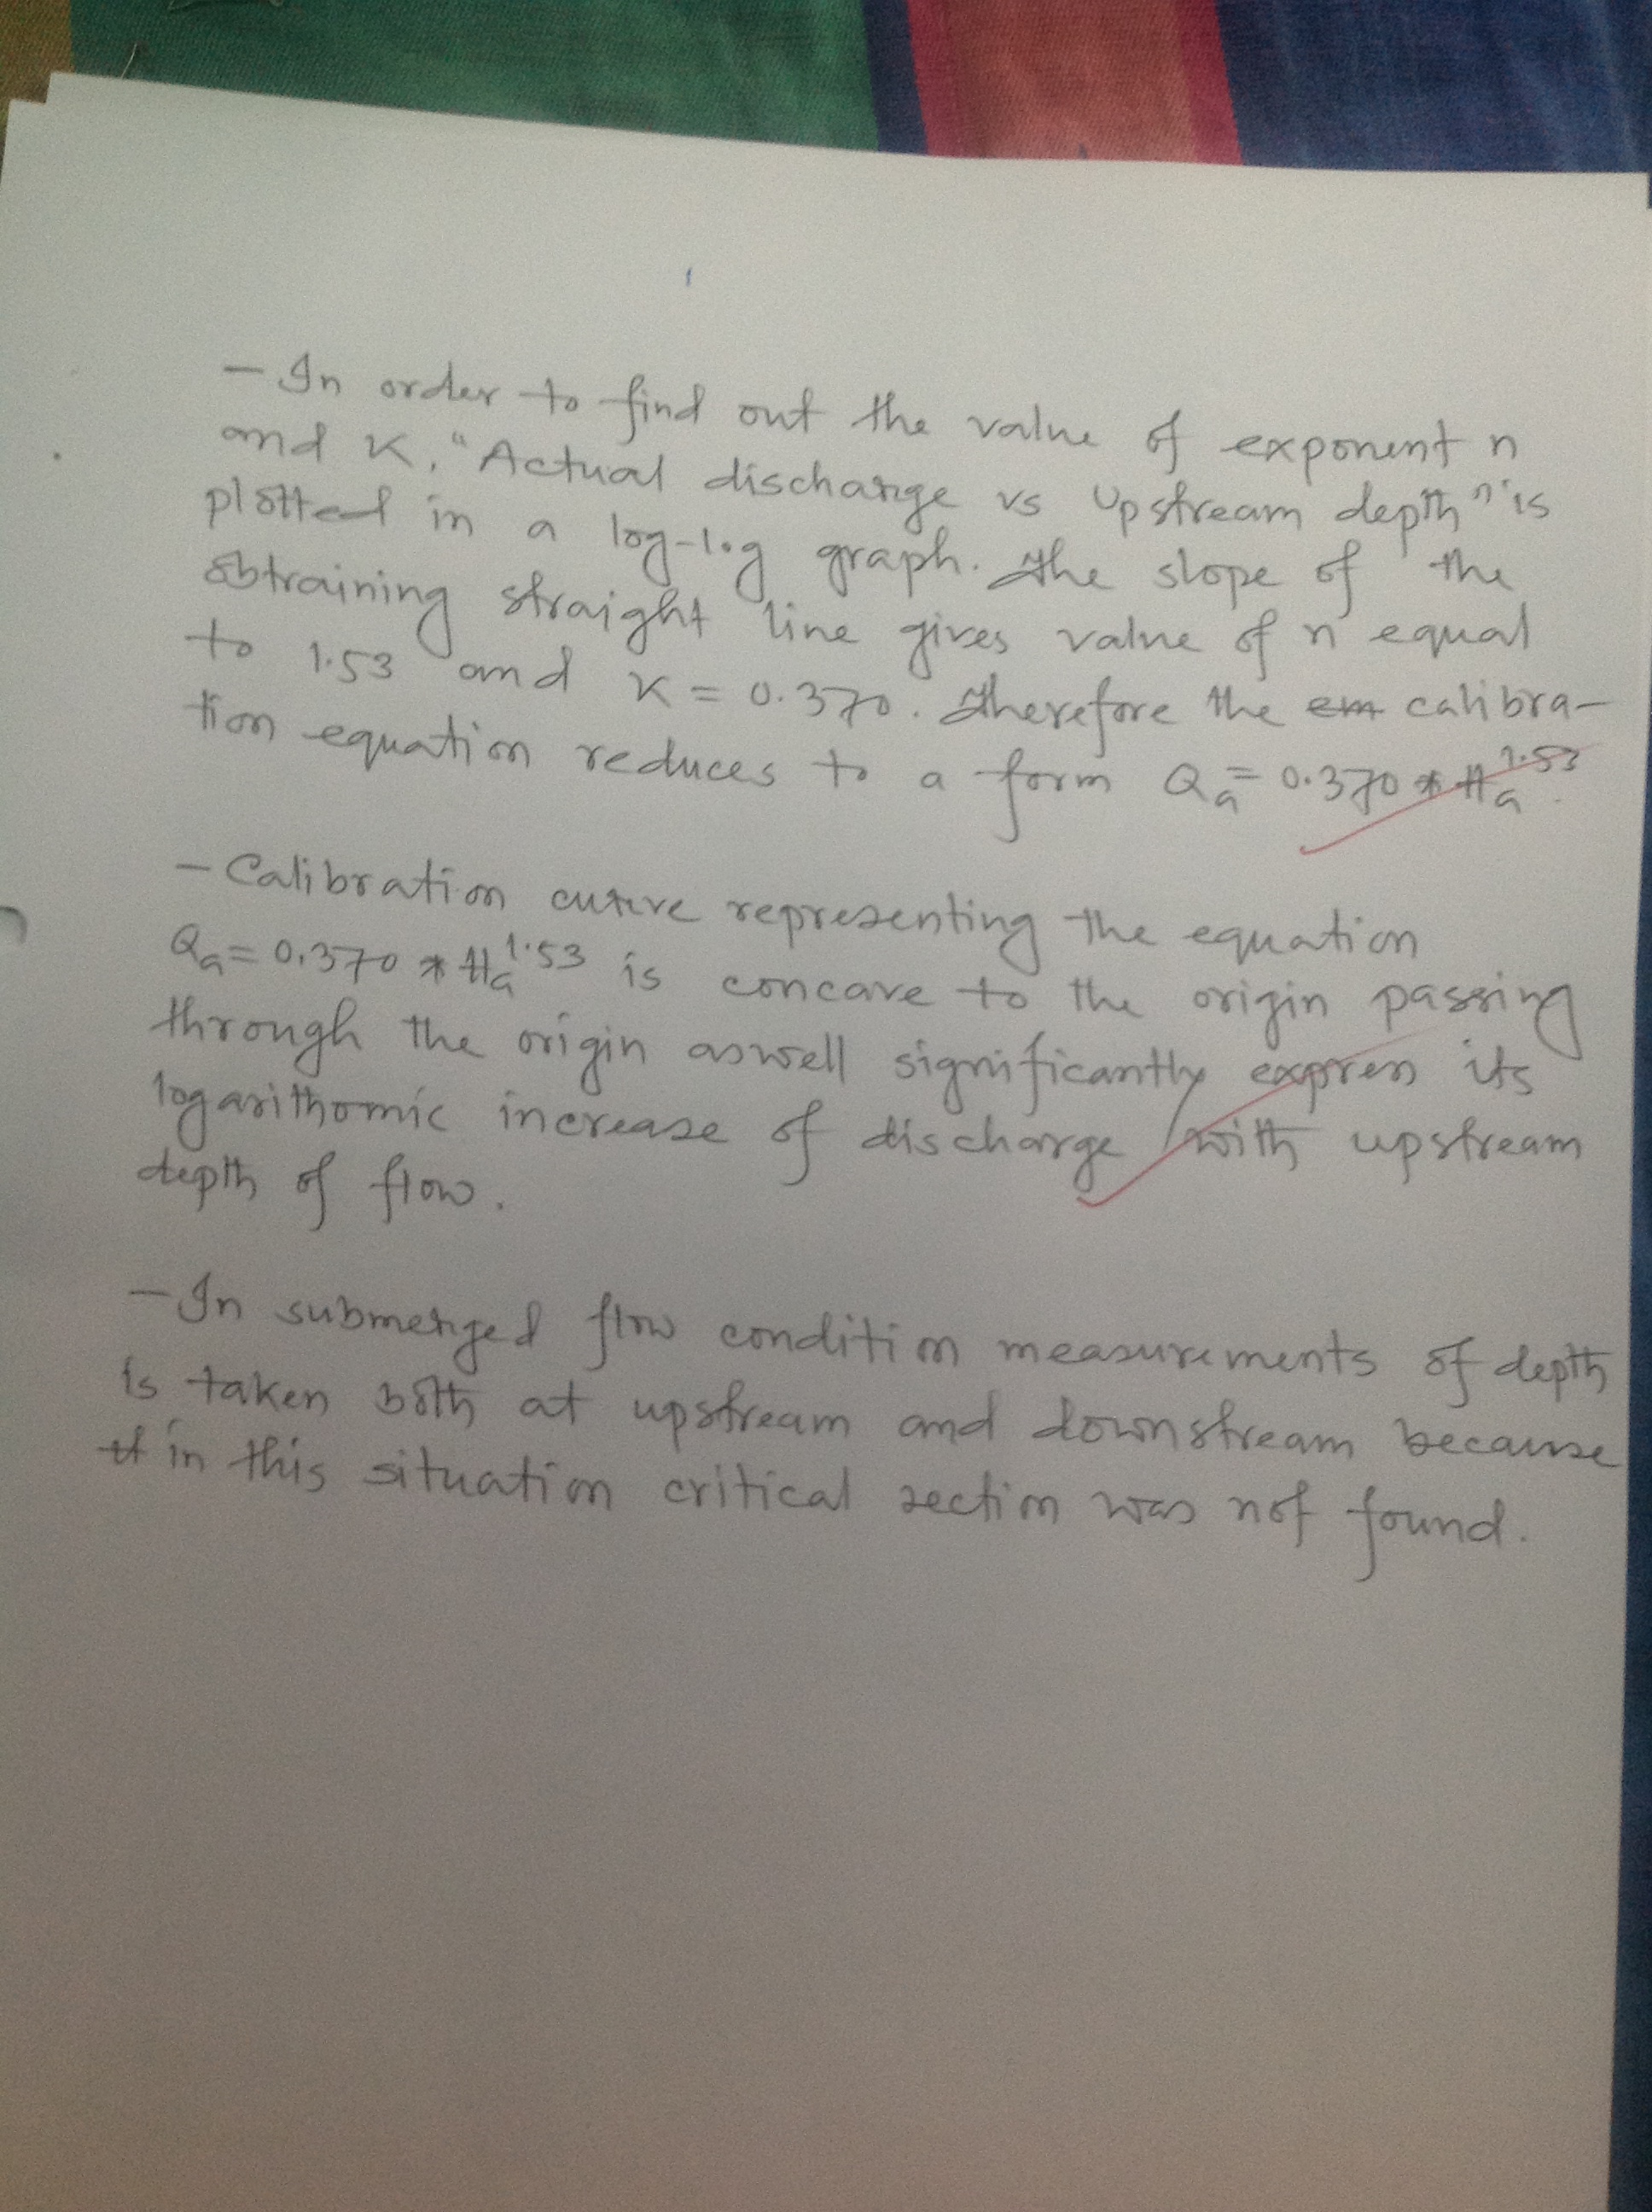 - In order to find out the value of exponent n
and K, "Actual discharge vs Upstream depth" is
plotted in a log-log graph. The slope of the
obtraining straight line gives value of n equal
to 1.53 and K = 0.370. Therefore the em calibra-
tion equation reduces to a form Qa = 0.370 * Ha^1.53.
- Calibration curve representing the equation
Qa = 0.370 * Ha^1.53 is concave to the origin passing
through the origin aswell significantly express its
logarithomic increase of discharge with upstream
depth of flow.
- In submerged flow condition measurements of depth
is taken both at upstream and downstream because
in this situation critical section was not found.